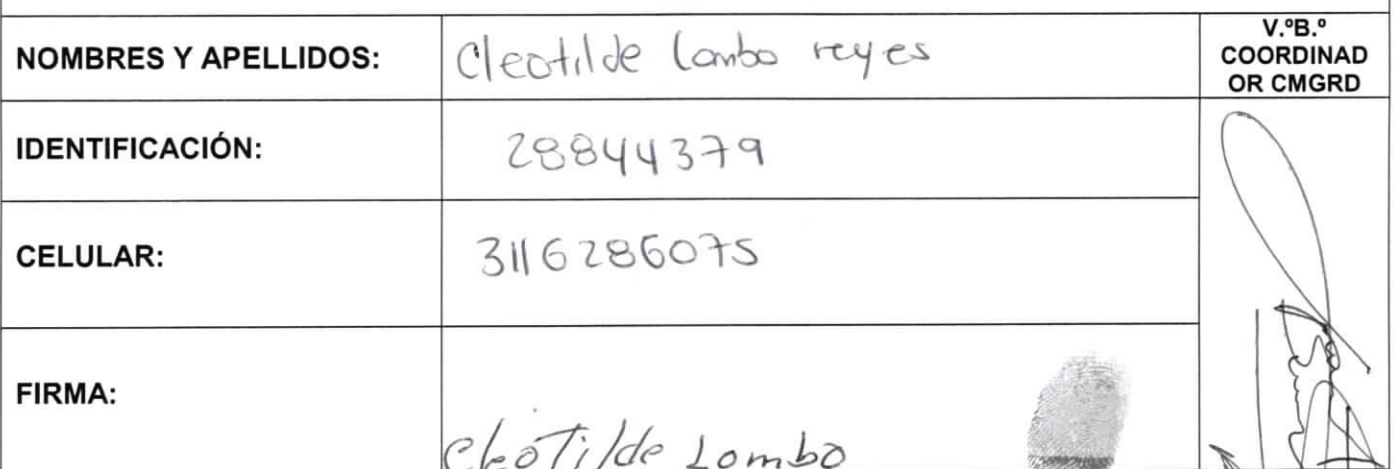 NOMBRES Y APELLIDOS: Cleotilde Lombo reyes
V.ºB.º
COORDINAD
OR CMGRD
IDENTIFICACIÓN: 28844379
CELULAR: 3116286075
FIRMA: Cleotilde Lombo